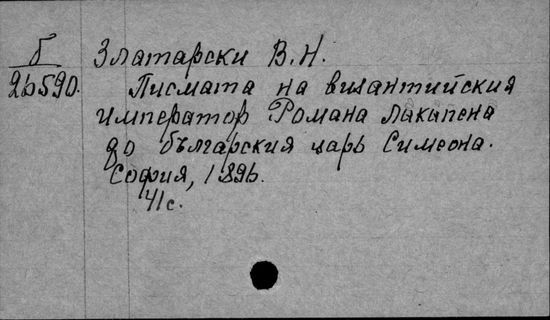 б Златарски В.Н.
26590. Писмата на византийския
император Романа Лакапена
до българския царь Симеона.
София, 1896.
41с.